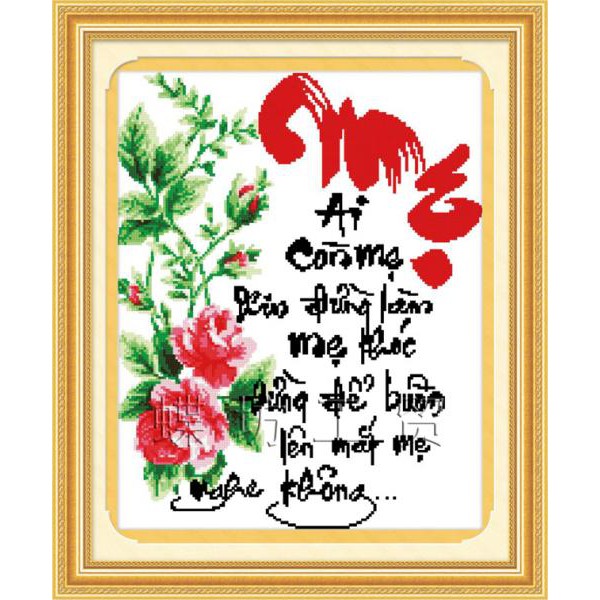 Mẹ
Ai
Còn mẹ
Xin đừng làm
mẹ khóc
Đừng để buồn
lên mắt mẹ
nghe không...
蝶坊工贸